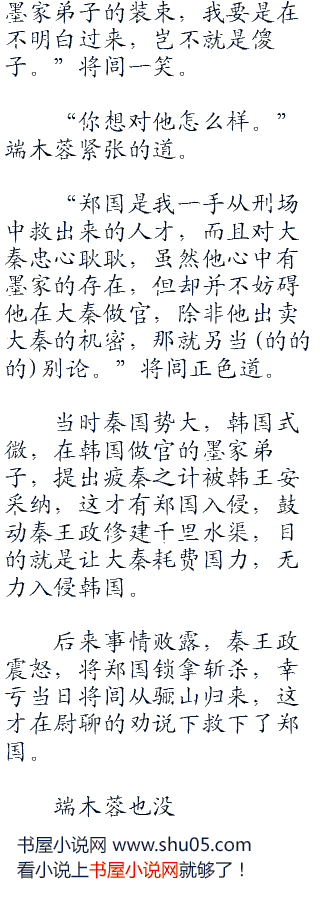 墨家弟子的装束，我要是在
不明白过来，岂不就是傻
子。”将闾一笑。
“你想对他怎么样。”
端木蓉紧张的道。
“郑国是我一手从刑场
中救出来的人才，而且对大
秦忠心耿耿，虽然他心中有
墨家的存在，但却并不妨碍
他在大秦做官，除非他出卖
大秦的机密，那就另当(的的
的)别论。”将闾正色道。
当时秦国势大，韩国式
微，在韩国做官的墨家弟
子，提出疲秦之计被韩王安
采纳，这才有郑国入侵，鼓
动秦王政修建千里水渠，目
的就是让大秦耗费国力，无
力入侵韩国。
后来事情败露，秦王政
震怒，将郑国锁拿斩杀，幸
亏当日将闾从骊山归来，这
才在尉聊的劝说下救下了郑
国。
端木蓉也没
书屋小说网 www.shu05.com
看小说上书屋小说网就够了！